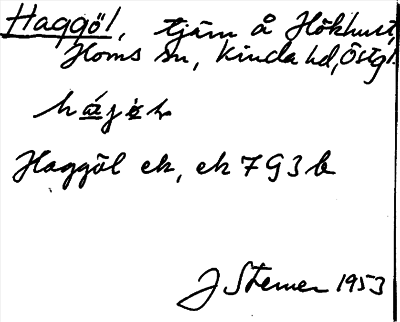 Haggöl, tjärn å Hökhult,
Horns sn, Kinda hd, Östgl.
Haggöl ek, ek 7 G 3 b
J Sterner 1953